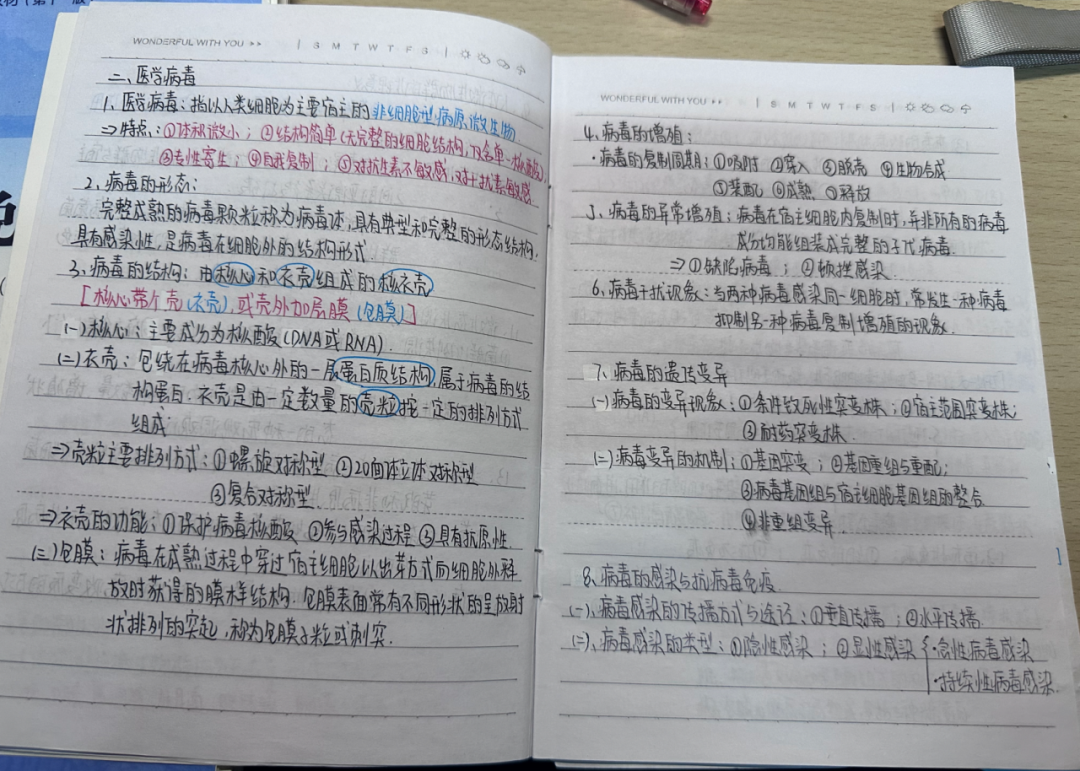 WONDERFUL WITH YOU >> | S M T W T F S |
二、医学病毒
1、医学病毒：指以人类细胞为主要宿主的非细胞型病原微生物.
⇒特点：①体积微小；②结构简单(无完整的细胞结构,只含单一核酸)；
③专性寄生；④自我复制；⑤对抗生素不敏感,对干扰素敏感.
2、病毒的形态：
完整成熟的病毒颗粒称为病毒体,具有典型和完整的形态结构,
具有感染性,是病毒在细胞外的结构形式.
3、病毒的结构：由核心和衣壳组成的核衣壳
[核心带个壳(衣壳),或壳外加层膜(包膜)]
(一)核心：主要成分为核酸(DNA或RNA).
(二)衣壳：包绕在病毒核心外的一层蛋白质结构,属于病毒的结
构蛋白.衣壳是由一定数量的壳粒按一定的排列方式
组成.
⇒壳粒主要排列方式：①螺旋对称型 ②20面体立体对称型
③复合对称型.
⇒衣壳的功能：①保护病毒核酸 ②参与感染过程 ③具有抗原性.
(三)包膜：病毒在成熟过程中穿过宿主细胞以出芽方式向细胞外释
放时获得的膜样结构.包膜表面常有不同形状的呈放射
状排列的突起,称为包膜子粒或刺突.
WONDERFUL WITH YOU >> | S M T W T F S |
4、病毒的增殖：
·病毒的复制周期：①吸附 ②穿入 ③脱壳 ④生物合成
⑤装配 ⑥成熟 ⑦释放
5、病毒的异常增殖：病毒在宿主细胞内复制时,并非所有的病毒
成分均能组装成完整的子代病毒.
⇒①缺陷病毒；②顿挫感染.
6、病毒干扰现象：当两种病毒感染同一细胞时,常发生一种病毒
抑制另一种病毒复制增殖的现象.
7、病毒的遗传变异
(一)病毒的变异现象：①条件致死性突变株；②宿主范围突变株；
③耐药突变株.
(二)病毒变异的机制：①基因突变；②基因重组与重配；
③病毒基因组与宿主细胞基因组的整合
④非重组变异.
8、病毒的感染与抗病毒免疫
(一)、病毒感染的传播方式与途径：①垂直传播；②水平传播
(二)、病毒感染的类型：①隐性感染；②显性感染{·急性病毒感染
·持续性病毒感染.